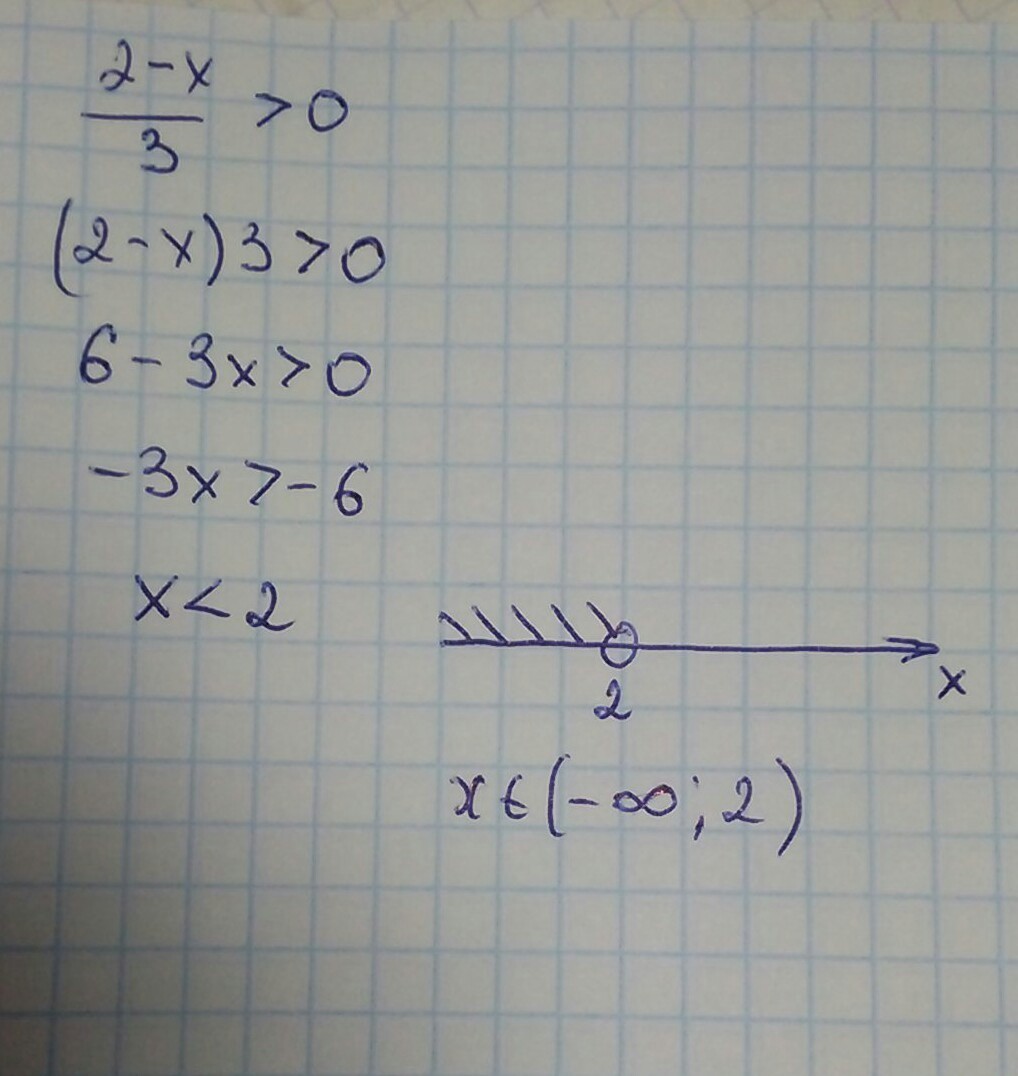 2-x
3
>0
(2-x)3>0
6-3x>0
-3x>-6
x<2
2
x
x∈(-∞;2)